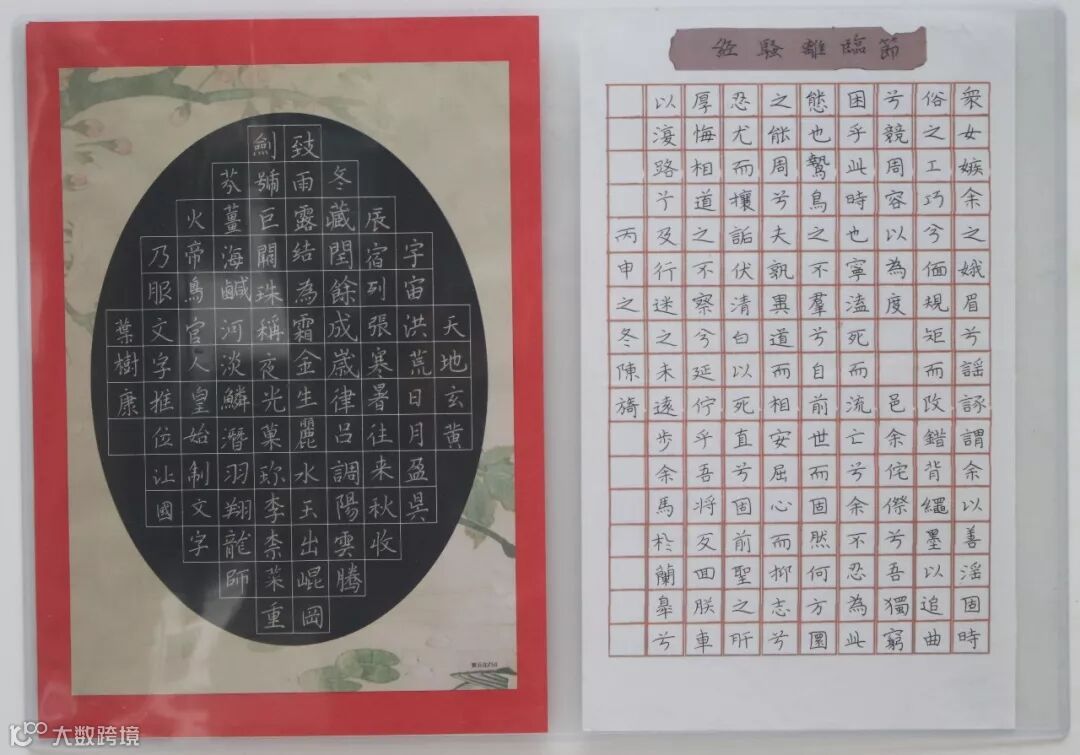 天地玄黄
字宙洪荒日月盈昃
辰宿列張寒暑往来秋收
冬藏閏餘成歲律吕調陽雲騰
致雨露結為霜金生麗水玉出崐岡
劍號巨闕珠稱夜光菓珎李柰菜重
芥薑海鹹河淡鱗潛羽翔龍師
火帝鳥官人皇始制文字
乃服文字推位让國
葉樹康
節臨離騷經
衆女嫉余之娥眉兮謠諑謂余以善滛固時
俗之工巧兮偭規矩而改錯背繩墨以追曲
兮競周容以為度邑余侘傺兮吾獨窮
困乎此時也寧溘死而流亡兮余不忍為此
態也鷙鳥之不羣兮自前世而固然何方圜
之能周兮夫孰異道而相安屈心而抑志兮
忍尤而攘詬伏清白以死直兮固前聖之所
厚悔相道之不察兮延佇乎吾將反回朕車
以復路兮及行迷之未遠步余馬於蘭臯兮
丙申之冬陳旖
大数跨境